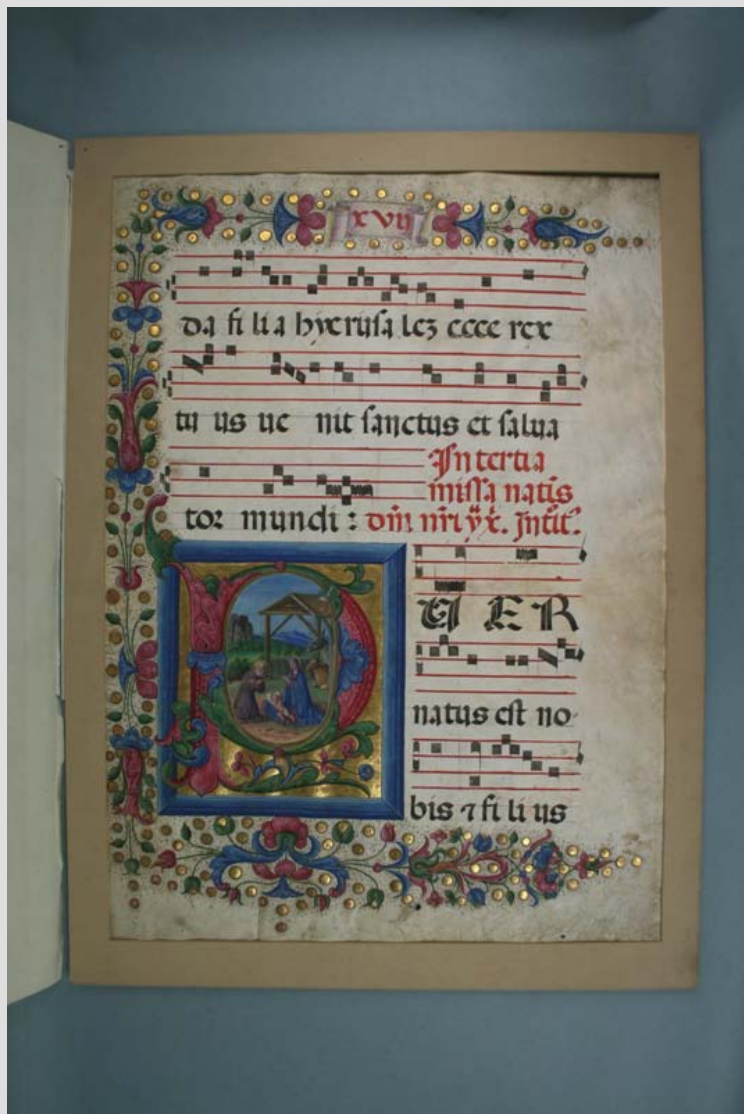 xvij
da fi li a hyerusa lez ecce rex
tu us ue nit sanctus et salua
In tertia
missa natiͥs
tor mundi : dñi nr̄i yħ. Intit.
P U E R
natus est no
bis ⁊ fi li us